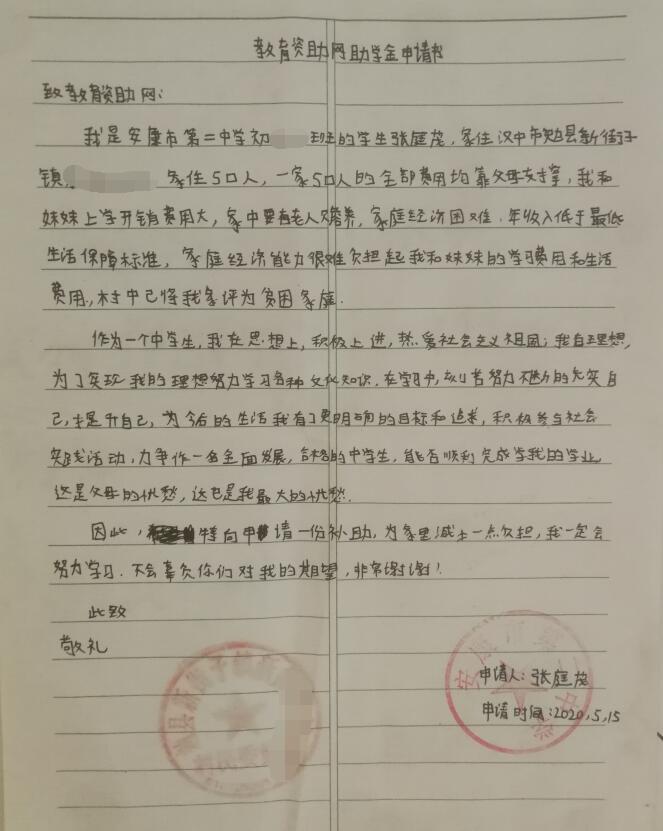 教育资助网助学金申请书
致教育资助网：
我是安康市第二中学初 班的学生张庭茂，家住汉中市勉县新街子
镇， 家住5口人，一家5口人的全部费用均靠父母支撑，我和
妹妹上学开销费用大，家中要有老人赡养，家庭经济困难，年收入低于最低
生活保障标准，家庭经济能力很难负担起我和妹妹的学习费用和生活
费用，村中已将我家评为贫困家庭.
作为一个中学生，我在思想上，积极上进，热爱社会主义祖国；我有理想，
为了实现我的理想努力学习各种文化知识.在学习中，刻苦努力不断的充实自
己，提升自己，为今后的生活我有了更明确的目标和追求，积极参与社会
实践活动，力争作一名全面发展，合格的中学生，能否顺利完成学我的学业，
这是父母的忧愁，这也是我最大的忧愁.
因此， 特向申请一份补助，为家里减少一点负担，我一定会
努力学习.不会辜负你们对我的期望，非常谢谢！
此致
敬礼
安康市第二中学
申请人：张庭茂
申请时间：2020.5.15